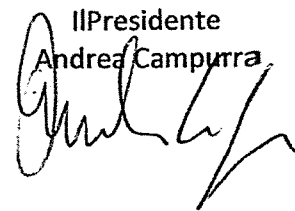 IlPresidente
Andrea Campurra